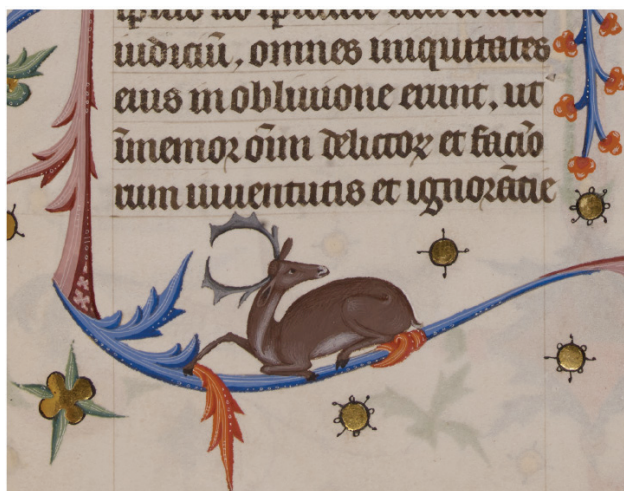 iudiciũ, omnes iniquitates
eius in obliuione erunt, ut
ĩmemor oĩm delictoꝝ et facio
rum iuuentutis et ignorãtie